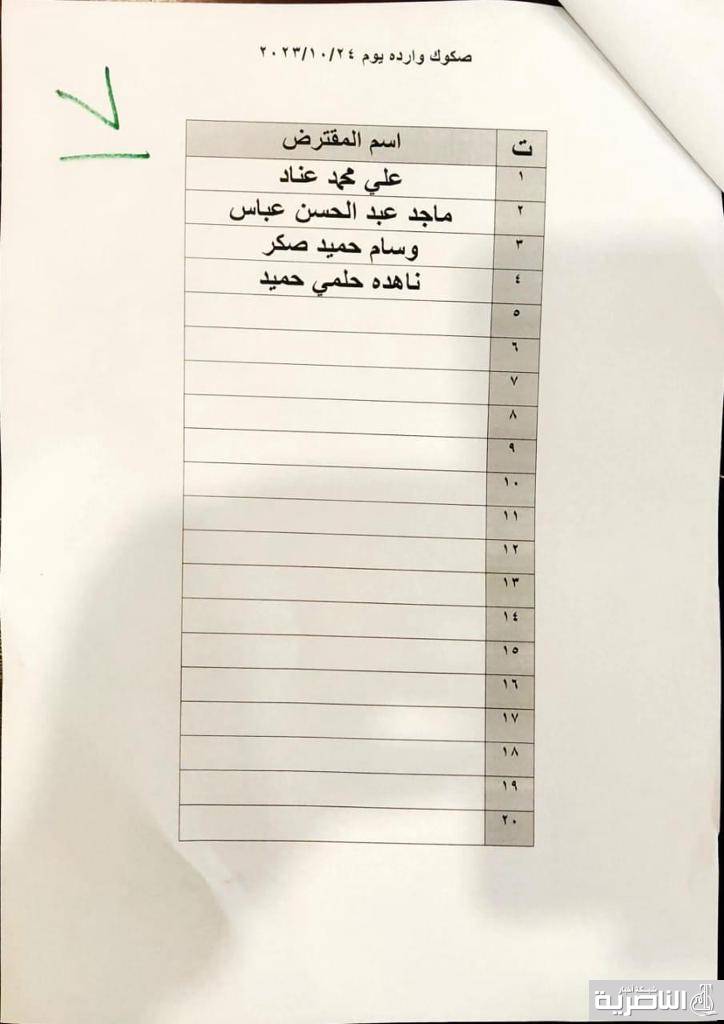 صكوك وارده يوم ٢٠٢٣/١٠/٢٤
٧
ت اسم المقترض
١ علي محمد عناد
٢ ماجد عبد الحسن عباس
٣ وسام حميد صكر
٤ ناهده حلمي حميد
٥
٦
٧
٨
٩
١٠
١١
١٢
١٣
١٤
١٥
١٦
١٧
١٨
١٩
٢٠
شبكة أخبار
الناصرية